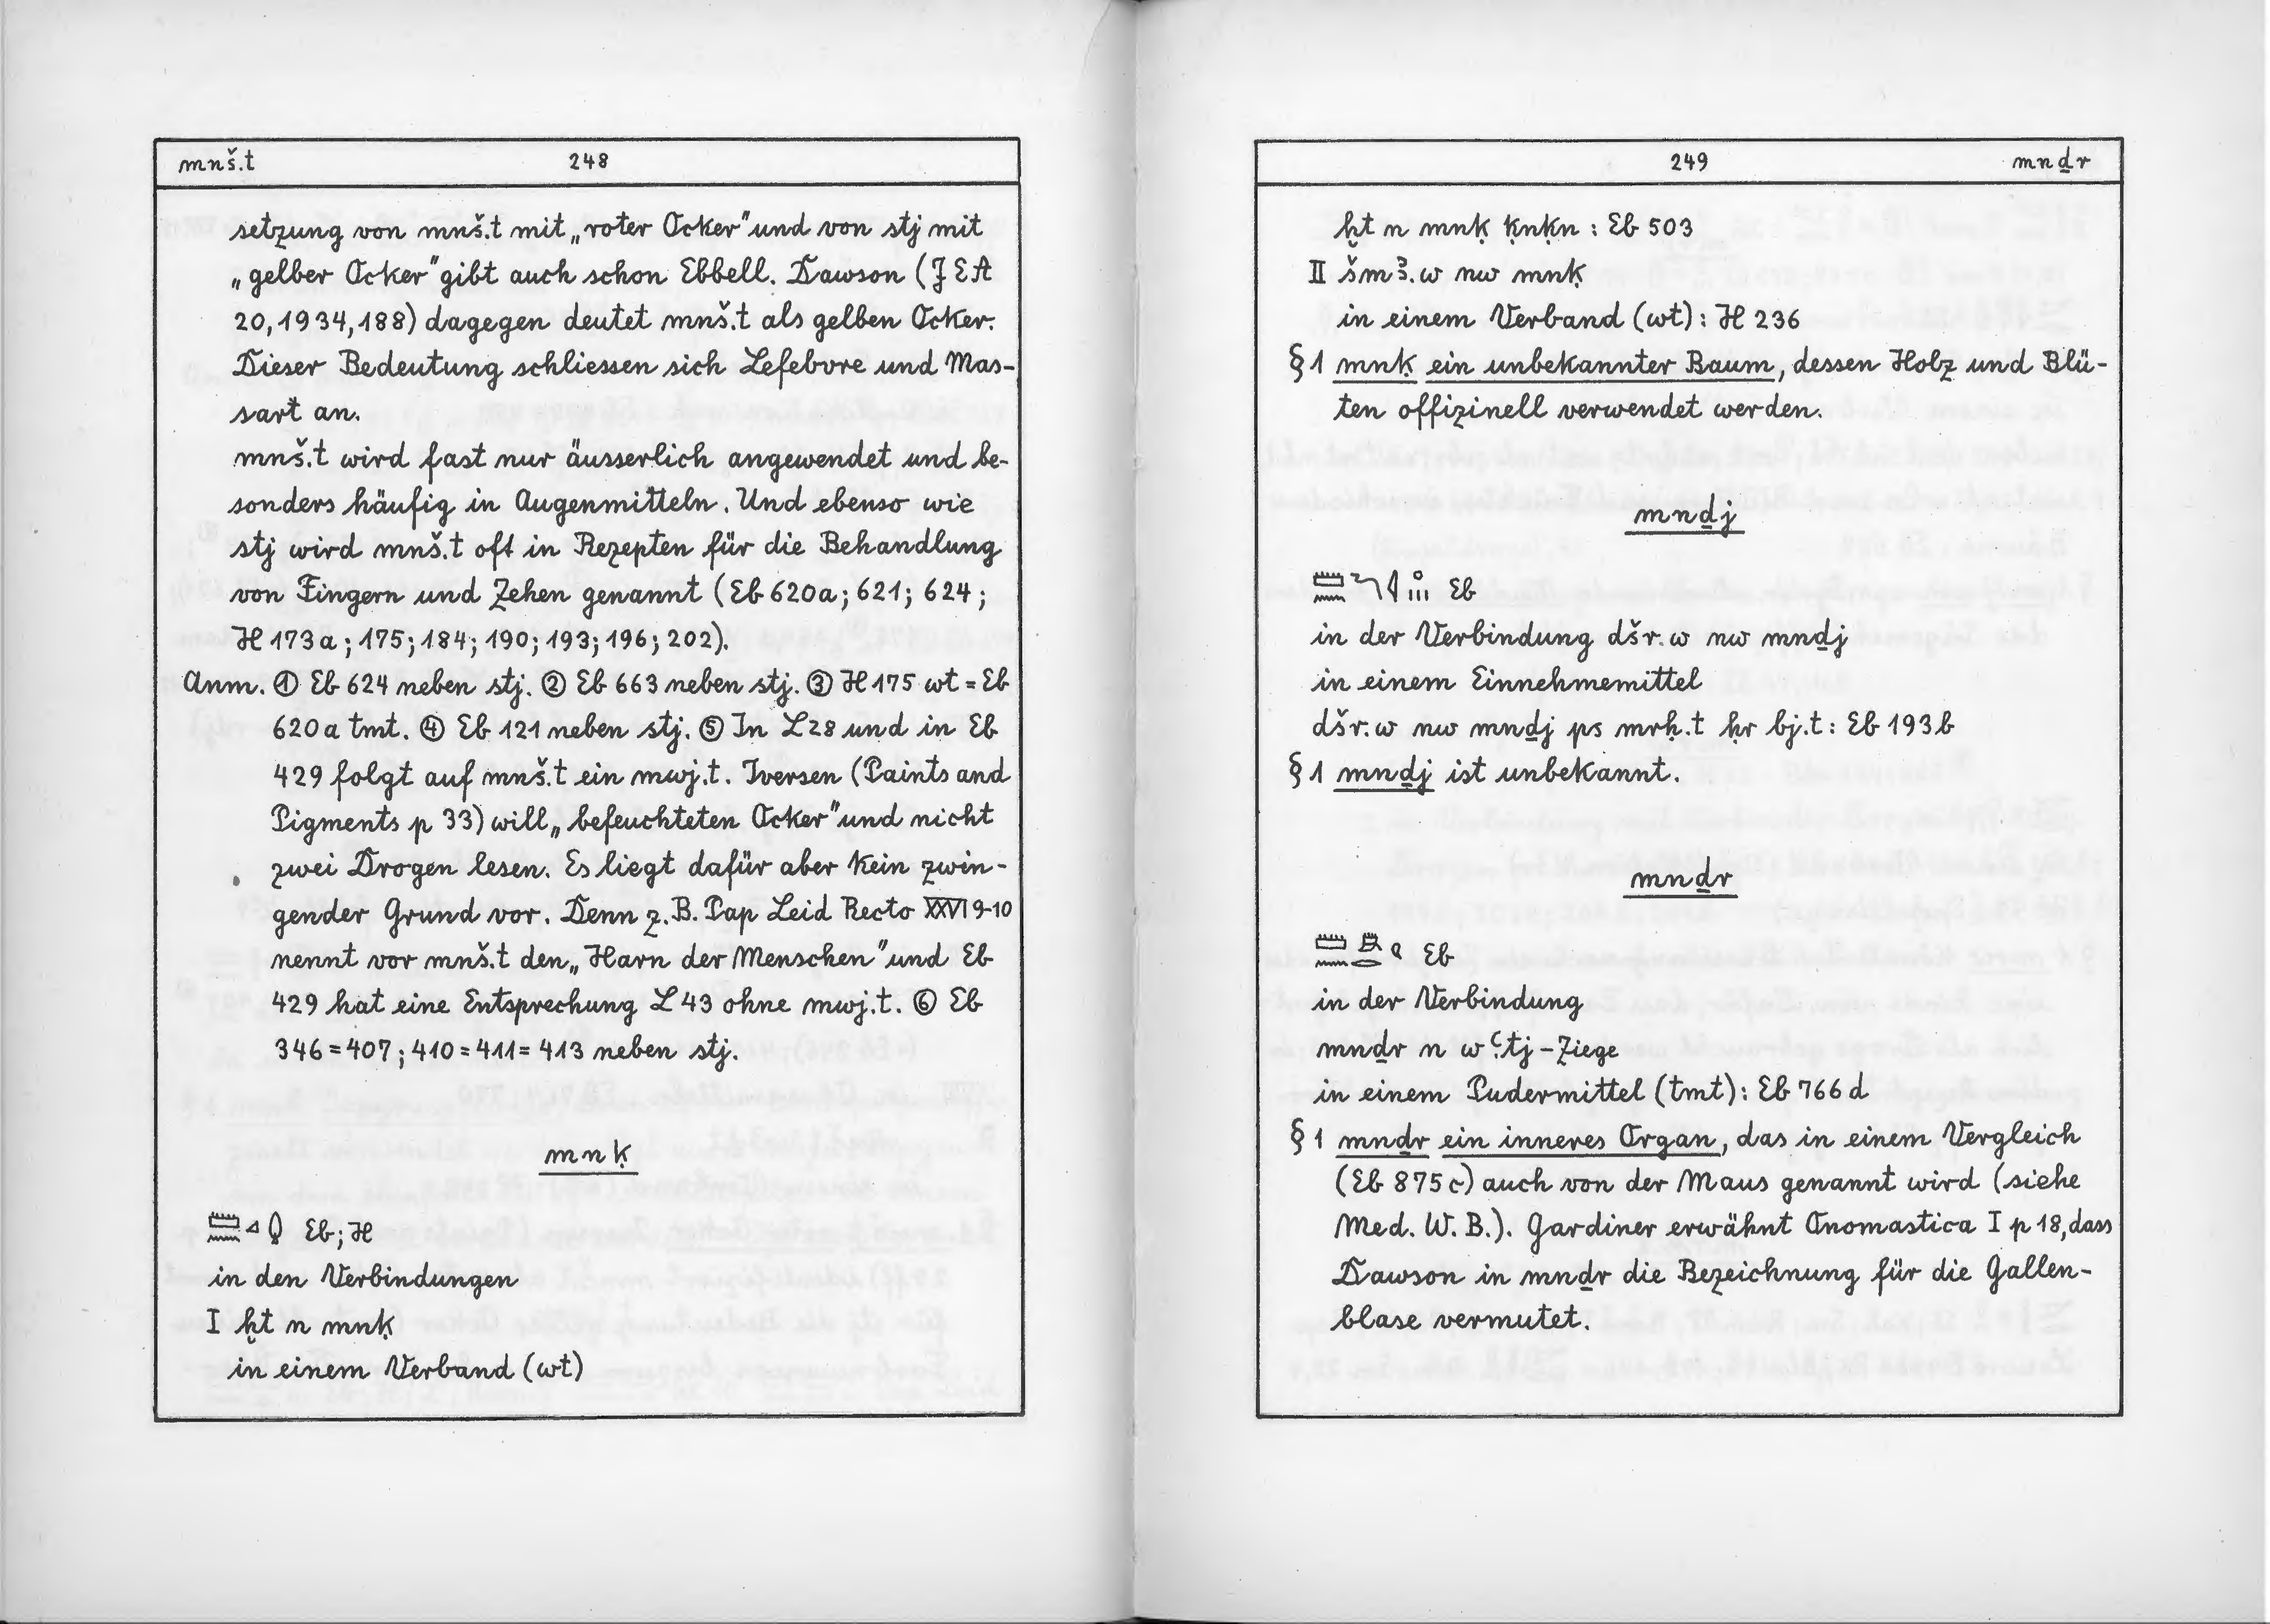 mnš.t 248
setzung von mnš.t mit „roter Ocker" und von stj mit
„gelber Ocker" gibt auch schon Ebbell. Dawson (JEA
20, 1934, 188) dagegen deutet mnš.t als gelben Ocker.
Dieser Bedeutung schliessen sich Lefebvre und Mas-
sart an.
mnš.t wird fast nur äusserlich angewendet und be-
sonders häufig in Augenmitteln. Und ebenso wie
stj wird mnš.t oft in Rezepten für die Behandlung
von Fingern und Zehen genannt (Eb 620a; 621; 624;
H 173a; 175; 184; 190; 193; 196; 202).
Anm. ① Eb 624 neben stj. ② Eb 663 neben stj. ③ H 175 wt = Eb
620a tmt. ④ Eb 121 neben stj. ⑤ In L28 und in Eb
429 folgt auf mnš.t ein mwj.t. Iversen (Paints and
Pigments p 33) will „befeuchteten Ocker" und nicht
zwei Drogen lesen. Es liegt dafür aber kein zwin-
gender Grund vor. Denn z.B. Pap Leid Recto XXVI 9-10
nennt vor mnš.t den „Harn der Menschen" und Eb
429 hat eine Entsprechung L 43 ohne mwj.t. ⑥ Eb
346 = 407; 410 = 411 = 413 neben stj.
mnḳ
Eb; H
in den Verbindungen
I ḫt n mnḳ
in einem Verband (wt)
249 mnḏr
ḫt n mnḳ ḳnḳn : Eb 503
II šmꜣ.w nw mnḳ
in einem Verband (wt) : H 236
§ 1 mnḳ ein unbekannter Baum, dessen Holz und Blü-
ten offizinell verwendet werden.
mnḏj
Eb
in der Verbindung dšr.w nw mnḏj
in einem Einnehmemittel
dšr.w nw mnḏj ps mrḥ.t ḥr bj.t : Eb 193b
§ 1 mnḏj ist unbekannt.
mnḏr
Eb
in der Verbindung
mnḏr n wꜥtj - Ziege
in einem Pudermittel (tmt) : Eb 766d
§ 1 mnḏr ein inneres Organ, das in einem Vergleich
(Eb 875c) auch von der Maus genannt wird (siehe
Med. W. B.). Gardiner erwähnt Onomastica I p 18, dass
Dawson in mnḏr die Bezeichnung für die Gallen-
blase vermutet.